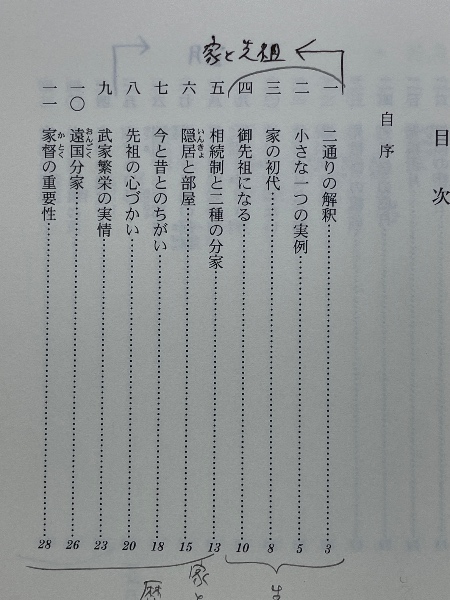 家と先祖
目次
自序
一 二通りの解釈 3
二 小さな一つの実例 5
三 家の初代 8
四 御先祖になる 10
五 相続制と二種の分家 13
六 隠居と部屋 15
いんきょ
七 今と昔とのちがい 18
八 先祖の心づかい 20
九 武家繁栄の実情 23
一〇 遠国分家 26
おんごく
一一 家督の重要性 28
かとく
家と
歴